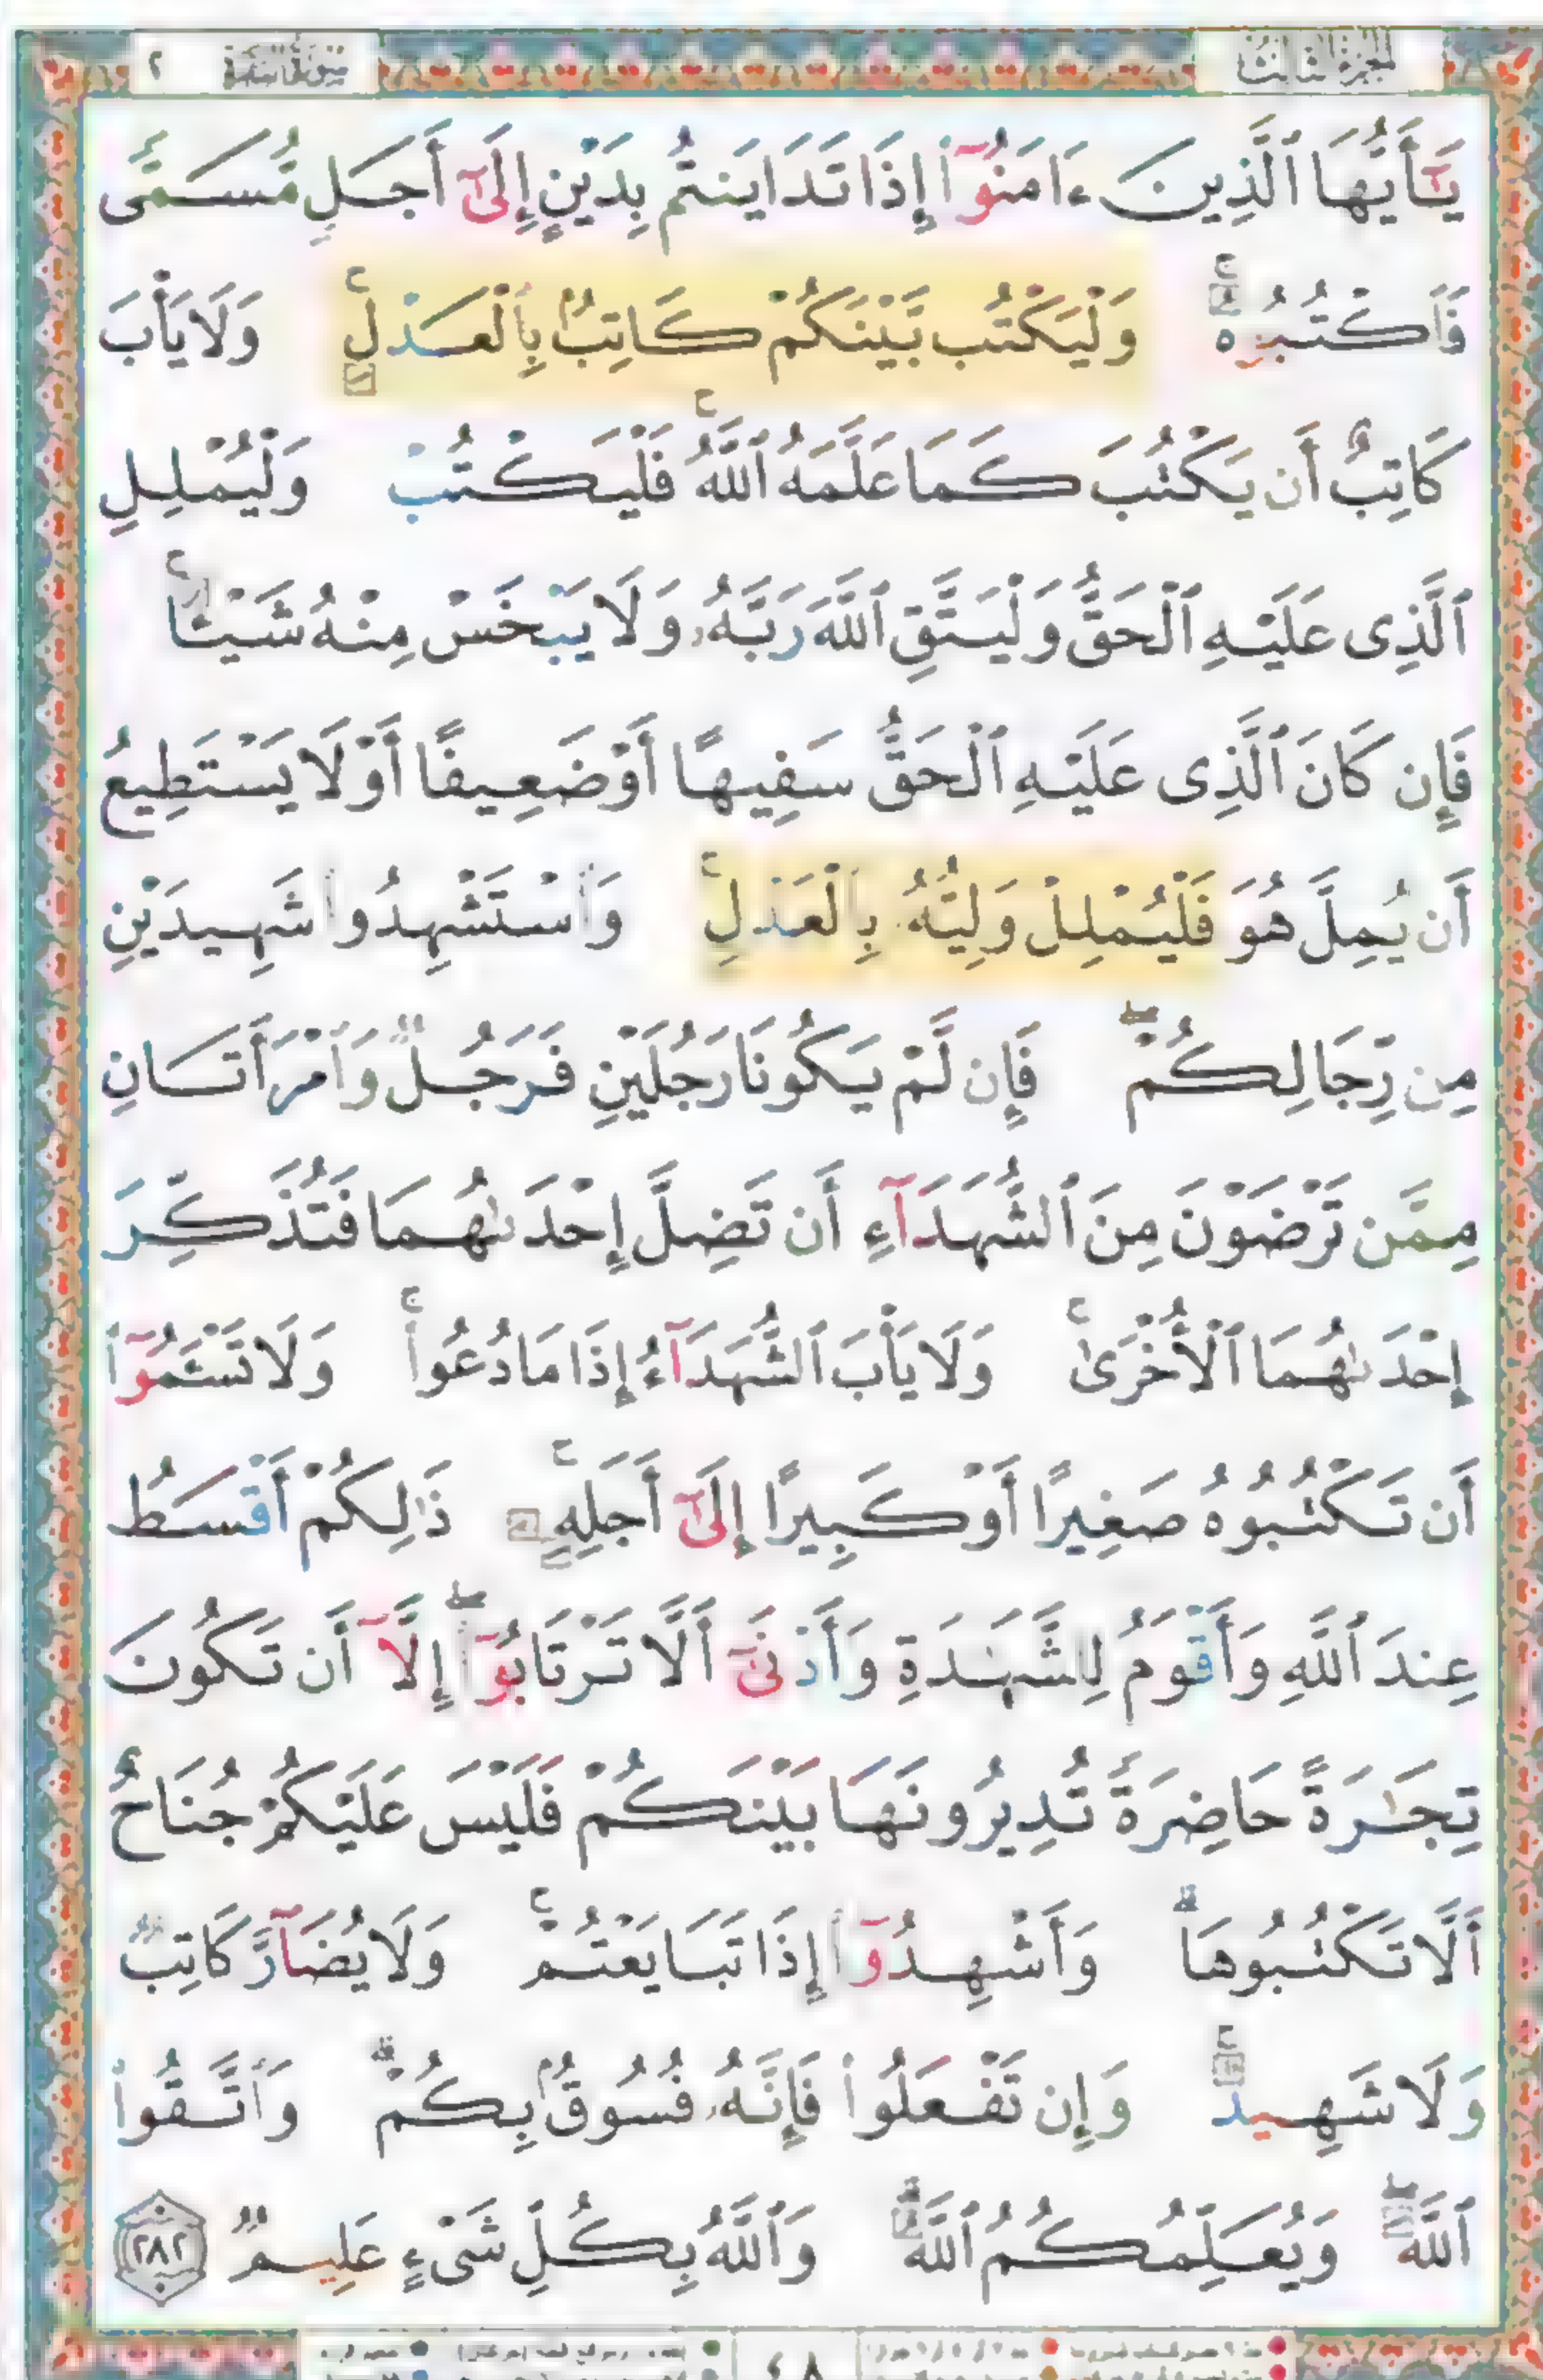 الجزء الثالث سورة البقرة ٢
يَـٰٓأَيُّهَا ٱلَّذِينَ ءَامَنُوٓا۟ إِذَا تَدَايَنتُم بِدَيْنٍ إِلَىٰٓ أَجَلٍ مُّسَمًّى
فَٱكْتُبُوهُ ۚ وَلْيَكْتُب بَّيْنَكُمْ كَاتِبٌۢ بِٱلْعَدْلِ ۚ وَلَا يَأْبَ
كَاتِبٌ أَن يَكْتُبَ كَمَا عَلَّمَهُ ٱللَّهُ ۚ فَلْيَكْتُبْ وَلْيُمْلِلِ
ٱلَّذِى عَلَيْهِ ٱلْحَقُّ وَلْيَتَّقِ ٱللَّهَ رَبَّهُۥ وَلَا يَبْخَسْ مِنْهُ شَيْـًٔا ۚ
فَإِن كَانَ ٱلَّذِى عَلَيْهِ ٱلْحَقُّ سَفِيهًا أَوْ ضَعِيفًا أَوْ لَا يَسْتَطِيعُ
أَن يُمِلَّ هُوَ فَلْيُمْلِلْ وَلِيُّهُۥ بِٱلْعَدْلِ ۚ وَٱسْتَشْهِدُوا۟ شَهِيدَيْنِ
مِن رِّجَالِكُمْ ۖ فَإِن لَّمْ يَكُونَا رَجُلَيْنِ فَرَجُلٌ وَٱمْرَأَتَانِ
مِمَّن تَرْضَوْنَ مِنَ ٱلشُّهَدَآءِ أَن تَضِلَّ إِحْدَىٰهُمَا فَتُذَكِّرَ
إِحْدَىٰهُمَا ٱلْأُخْرَىٰ ۚ وَلَا يَأْبَ ٱلشُّهَدَآءُ إِذَا مَا دُعُوا۟ ۚ وَلَا تَسْـَٔمُوٓا۟
أَن تَكْتُبُوهُ صَغِيرًا أَوْ كَبِيرًا إِلَىٰٓ أَجَلِهِۦ ۚ ذَٰلِكُمْ أَقْسَطُ
عِندَ ٱللَّهِ وَأَقْوَمُ لِلشَّهَـٰدَةِ وَأَدْنَىٰٓ أَلَّا تَرْتَابُوٓا۟ ۖ إِلَّآ أَن تَكُونَ
تِجَـٰرَةً حَاضِرَةً تُدِيرُونَهَا بَيْنَكُمْ فَلَيْسَ عَلَيْكُمْ جُنَاحٌ
أَلَّا تَكْتُبُوهَا ۗ وَأَشْهِدُوٓا۟ إِذَا تَبَايَعْتُمْ ۚ وَلَا يُضَآرَّ كَاتِبٌ
وَلَا شَهِيدٌ ۚ وَإِن تَفْعَلُوا۟ فَإِنَّهُۥ فُسُوقٌۢ بِكُمْ ۗ وَٱتَّقُوا۟
ٱللَّهَ ۖ وَيُعَلِّمُكُمُ ٱللَّهُ ۗ وَٱللَّهُ بِكُلِّ شَىْءٍ عَلِيمٌ ﴿٢٨٢﴾
٤٨